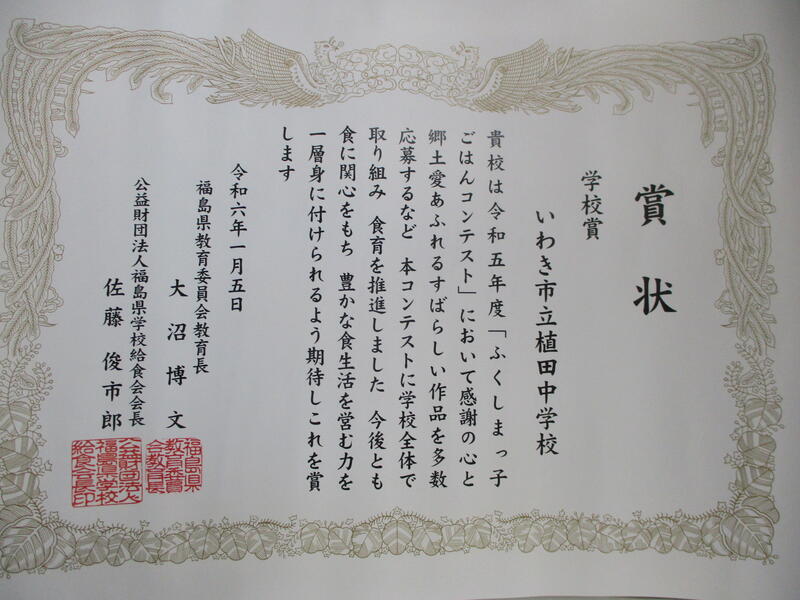 賞状
学校賞
いわき市立植田中学校
貴校は令和五年度「ふくしまっ子
ごはんコンテスト」において感謝の心と
郷土愛あふれるすばらしい作品を多数
応募するなど 本コンテストに学校全体で
取り組み 食育を推進しました 今後とも
食に関心をもち 豊かな食生活を営む力を
一層身に付けられるよう期待しこれを賞
します
令和六年一月五日
福島県教育委員会教育長
大沼博文
公益財団法人福島県学校給食会会長
佐藤俊市郎
福島県
教育委員
会教育長
公益財団法人
福島県学校
給食会長印